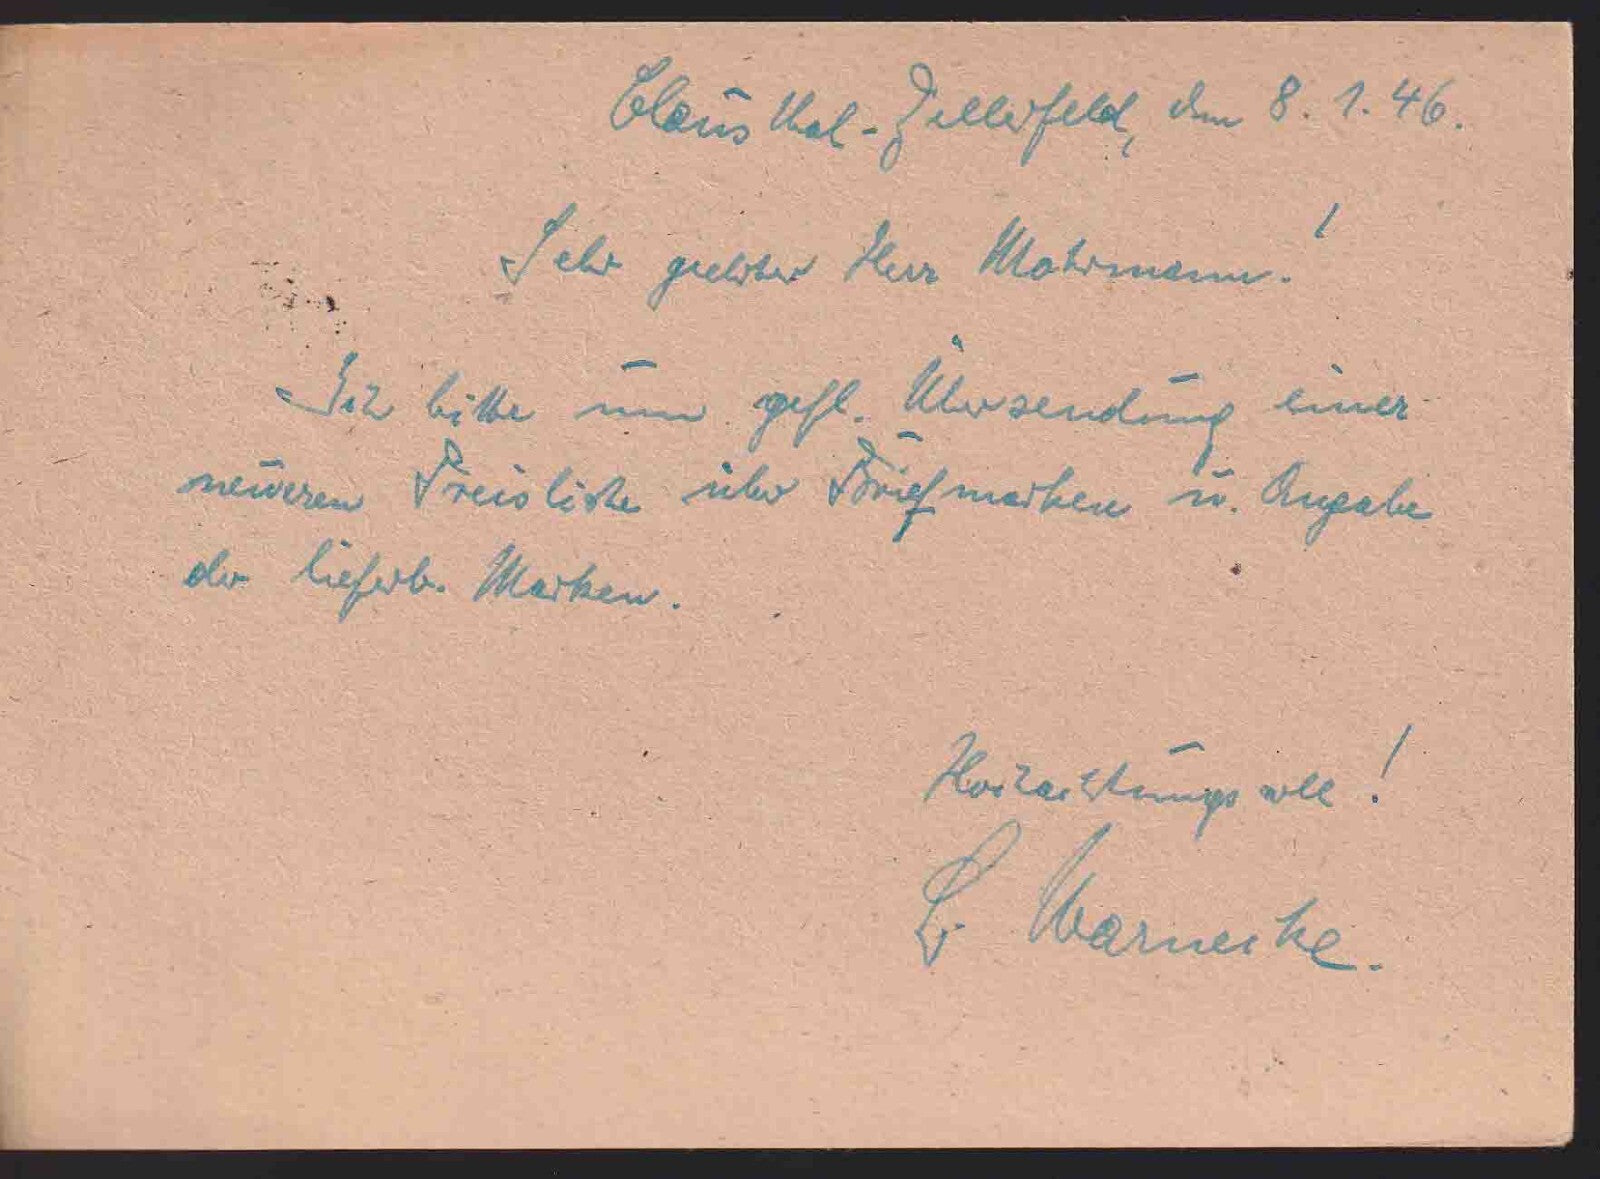 Clausthal-Zellerfeld, den 8. 1. 46.
Sehr geehrter Herr Mohrmann!
Ich bitte um gefl. Übersendung einer
neueren Preisliste über Briefmarken u. Angabe
der lieferb. Marken.
Hochachtungsvoll!
Warnecke.